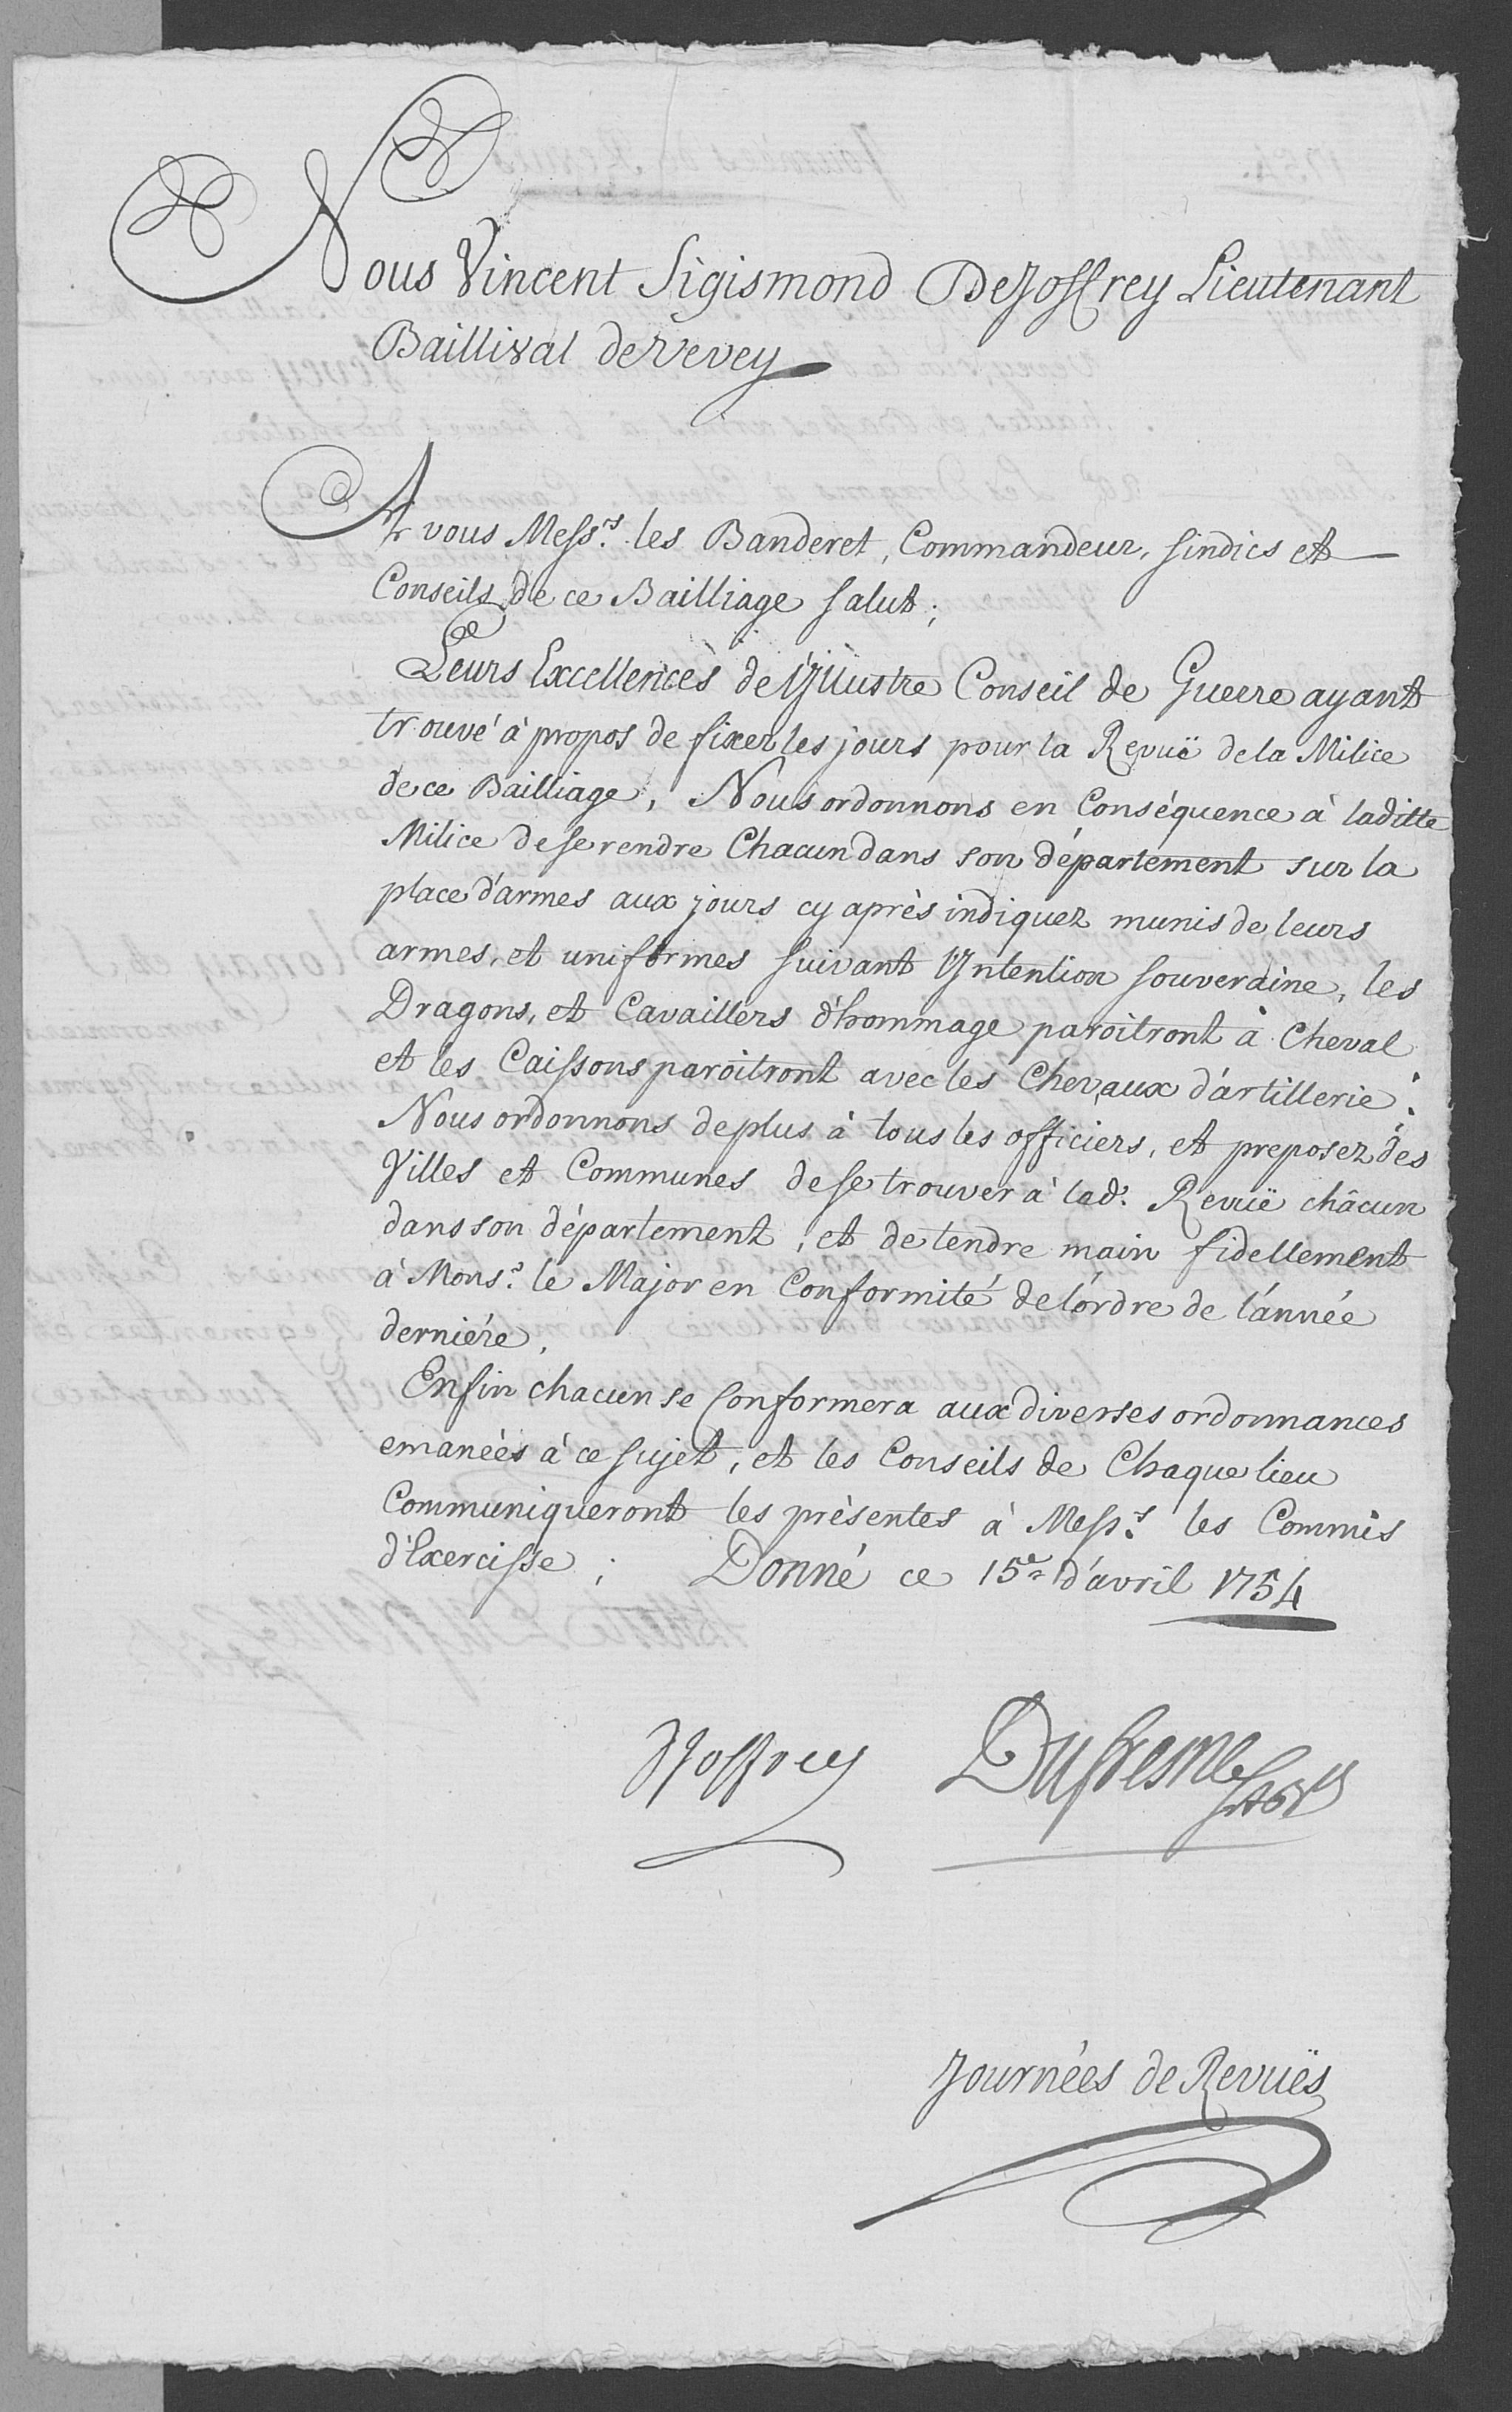 Nous Vincent Sigismond DeJoffrey Lieutenant
Baillival de Vevey
A vous Mess.rs les Banderet, Commandeur, sindics et
Conseils de ce Bailliage salut;
Leurs Excellences de l'Jllustre Conseil de Guerre ayant
trouvé à propos de fixer les jours pour la Revuë de la Milice
de ce Bailliage, Nous ordonnons en Conséquence à laditte
Milice de se rendre Chacun dans son département sur la
place d'armes aux jours cy après indiquez munis de leurs
armes, et uniformes suivant l'Jntention souveraine, les
Dragons, et Cavaillers d'hommage paroitront à Cheval
et les Caissons paroitront avec les Chevaux d'artillerie:
Nous ordonnons de plus à tous les officiers, et preposez des
Villes et Communes de se trouver à lad.e Revuë châcun
dans son département, et de tendre main fidellement
à Mons.r le Major en Conformité de l'ordre de l'année
derniére,
Enfin chacun se Conformera aux diverses ordonnances
emanées à ce sujet, et les Conseils de Chaque lieu
Communiqueront les présentes à Mess.rs les Commis
d'Exercisse; Donné ce 15.e d'avril 1754
Joffrey Dufresne
Journées de Revuës